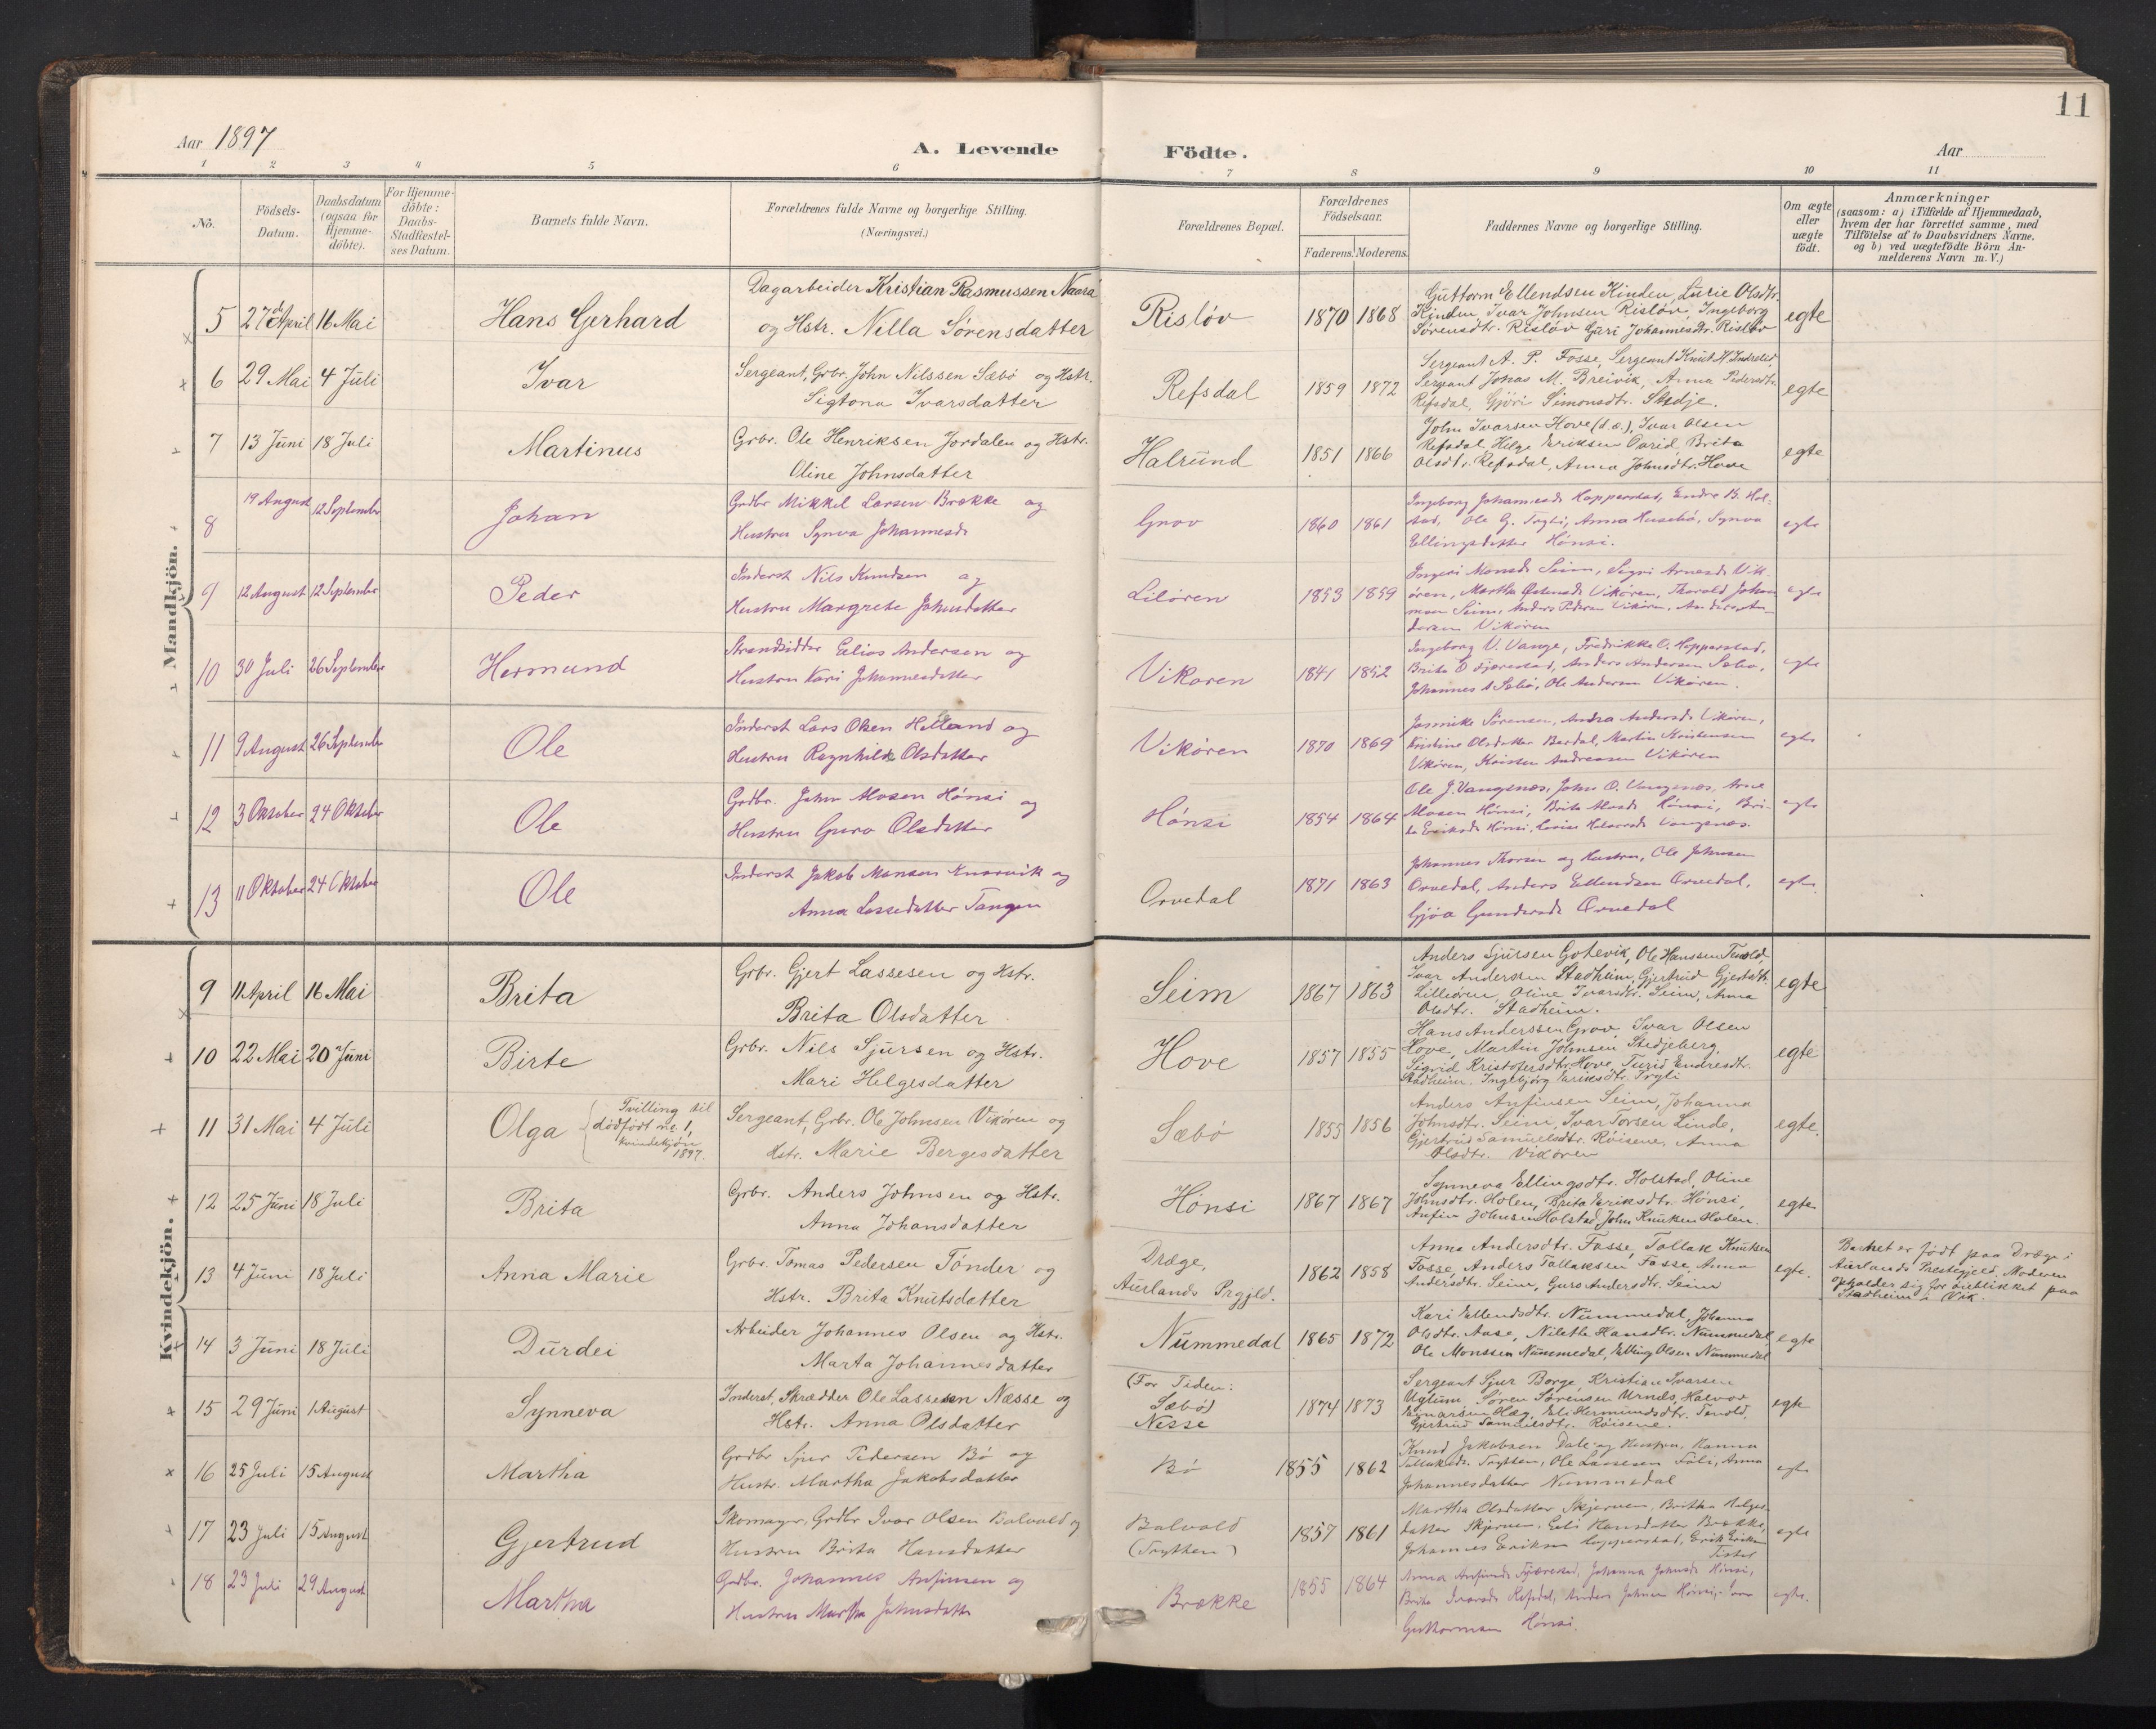 11
Aar 1897
A. Levende Födte.
Aar
1 2 3 4 5 6 7 8 9 10 11
No.
Födsels-Datum.
Daabsdatum (ogsaa for Hjemme-döbte).
For Hjemme-döbte: Daabs-Stadfæstel-ses Datum.
Barnets fulde Navn.
Forældrenes fulde Navne og borgerlige Stilling.
(Næringsvei.)
Forældrenes Bopæl.
Forældrenes Födselsaar.
Faderens. Moderens.
Faddernes Navne og borgerlige Stilling.
Om ægte eller uægte födt.
Anmærkninger
(saasom: a) i Tilfælde af Hjemmedaab,
hvem der har forrettet samme, med
Tilföielse af to Daabsvidners Navne,
og b) ved uægtefödte Börn An-
melderens Navn m. V.)
Mandkjön.
5 27de April 16 Mai Hans Gerhard
Dagarbeider Kristian Rasmussen Naara
og Hstr. Nilla Sørensdatter
Risløv 1870 1868
Guttorm Ellendsen Hinden, Lucie Olsdtr.
Hinden, Ivar Johnsen Risløv, Ingeborg
Sørensdtr. Risløv Guri Johannesdtr. Risløv
egte
6 29 Mai 4 Juli Ivar
Sergeant, Grbr. John Nilssen Sæbö og Hstr.
Sigtona Ivarsdatter
Refsdal 1859 1872
Sergeant A. P. Fosse, Sergeant Knut
Sergeant Jonas M. Breivik, Anna Pedersdtr.
Refsdal, Gjöri Simonsdtr. Stedje.
egte
7 13 Juni 18 Juli Martinus
Grbr. Ole Henriksen Jordalen og Hstr.
Oline Johnsdatter
Halrund 1851 1866
John Ivarsen Hove (d. æ.), Ivar Olsen
Refsdal, Helge Eriksen Brita
Olsdtr. Refsdal, Anna Johnsdtr. Hove
egte
8 19 August 12 September Johan
Grdbr Mikkel Larsen Brække og
Hustru Synva Johannesd
Grov 1860 1861
Ingeborg Johannesd Hopperstad, Endre B. Hol-
stad, Ole G. Trytti, Anna Husebö, Synva
Ellingsdatter Hönsi.
egte
9 12 August 12 September Peder
Inderst Nils Knudsen og
Hustru Margrete Johnsdatter
Lilören 1853 1859
Ingeri Monsd. Seim, Sigri Arnesd. Vik-
ören, Martha Vikören, Thorvald Johan
Seim, Anders Pedersen Vikören, Anders An-
dersen Vikören
egte
10 30 Juli 26 September Hermund
Strandsidder Elias Andersen og
Hustru Kari Johannesdatter
Vikoren 1841 1852
Ingeborg V. Vange, Fredrikke O. Hopperstad,
Brita O Fjærestad, Anders Andersen Sæbo,
Johannes A Sæbö, Ole Andersen Vikören.
egte
11 9 August 26 September Ole
Inderst Lars Olsen Helland og
Hustru Ragnhilde Olsdatter
Vikören 1870 1869
Jannike Sörensen, Andrea Andersd. Vikören,
Kristine Olsdatter Bardal, Martin Kristensen
Vikören, Kristen Andreasen Viköien
egte
12 3 Oktober 24 Oktober Ole
Grdbr. John Monsen Hönsi og
Hustru Guro Olsdatter
Hönsi 1854 1864
Ole J. Vangsnæs, John O. Vangsnæs, Arne
Monsen Hönsi, Brita Monsd Hönsi, Bri-
ta Eriksd. Hönsi, Vangsnæs.
egte
13 11 Oktober 24 Oktober Ole
Inderst Jakob Monsen Knarvik og
Anna Lassedatter Tangen
Orvedal 1871 1863
Johannes Thorsen og Hustru, Ole Johnsen
Orvedal, Anders Ellendsen Orvedal,
Gjöa Gundersd. Orvedal
egte
Kvindekjön.
9 11 April 16 Mai Brita
Grbr. Gjert Lassesen og Hstr.
Brita Olsdatter
Seim 1867 1863
Anders Sjursen Gotevik, Ole Hanssen Tenold,
Ivar Anderssen Stadheim, Gjertrud Gjertsdtr.
Lilliören, Oline Ivarsdtr. Seim, Anna
Olsdtr. Stadheim.
egte
10 22 Mai 20 Juni Birte
Grbr. Nils Sjursen og Hstr.
Mari Helgesdatter
Hove 1857 1855
Hans Anderssen Grov, Ivar Olsen
Hove, Martin Johnsen Stedjeberg,
Sigrid Kristofersdtr. Hove, Turid Endresdtr.
Stadheim, Ingebjörg Eriksdtr. Tryti
egte
11 31 Mai 4 Juli Olga
Tvilling til
dödfödt no. 1,
kvindekjön
1897.
Sergeant, Grbr. Ole Johnsen Vikören og
Hstr. Marie Bergesdatter
Sæbö 1855 1856
Anders Anfinsen Seim, Johanna
Johnsdtr. Seim, Ivar Torsen Linde,
Gjertrud Samuelsdtr. Röisene, Anna
Olsdtr. Vikören
egte.
12 25 Juni 18 Juli Brita
Grbr. Anders Johnsen og Hstr.
Anna Johansdatter
Hönsi 1867 1867
Synneva Ellingsdtr. Holstad, Oline
Johnsdtr. Holen, Brita Eriksdtr. Hönsi,
Anfin Johnsen Holstad, John Knutsen Holen.
egte
13 4 Juni 18 Juli Anna Marie
Grbr. Tomas Pedersen Tönder og
Hstr. Brita Knutsdatter
Dræge,
Aurlands Prgjld. 1862 1858
Anna Andersdtr. Fosse, Tollak Knutsen
Fosse, Anders Tollaksen Fosse, Anna
Andersdtr. Seim, Guro Andersdtr. Seim
egte.
Barnet er födt paa Dræge i
Aurlands Prestegjeld. Moderen
opholder sig for öieblikket paa
Stadheim i Vik.
14 3 Juni 18 Juli Durdei
Arbeider Johannes Olsen og Hstr.
Marta Johannesdatter
Nummedal 1865 1872
Kari Ellendsdtr. Nummedal, Johanna
Olsdtr. Aase, Niletla Hansdtr. Nummedal,
Ole Monssen Nummedal, Elling Olsen Nummedal
egte
15 29 Juni 1 August Synneva
Inderst, Skrædder Ole Lassesen Næsse og
Hstr. Anna Olsdatter
(For Tiden:
Sæbö)
Nesse 1874 1873
Sergeant Sjur Borge, Kristian Ivarsen
Uglum, Sören Sörensen Urnes, Halvor
Hæg, Eli Hermundsdtr. Tenold,
Gjertrud Samuelsdtr. Röisene.
egte
16 25 Juli 15 August Martha
Grdbr Sjur Pedersen Bö og
Hustr. Martha Jakobsdatter
Bö 1855 1862
Knud Jakobsen Dale og Hustru, Hanna
Tollaksdr. Trytten, Ole Lassesen Föli, Anna
Johannesdatter Nummedal
egte
17 23 Juli 15 August Gjertrud
Skomager, Grdbr Ivar Olsen Balvold og
Hustru Brita Hansdatter
Balvold
(Trytten) 1857 1861
Martha Olsdatter Skjerven, Britha Helges-
datter Skjerven, Eli Hansdatter Brække,
Johannes Eriksen Hopperstad, Erik Eriksen
Tistel
egte
18 23 Juli 29 August Martha
Grdbr. Johannes Anfinsen og
Hustru Martha Johnsdatter
Brække 1855 1864
Anna Anfinsd. Fjærestad, Johanna Johnsd. Hönsi,
Brita Ivarsd. Refsdal, Anders Johnsen Hönsi,
Guttormsen Hönsi.
egte.